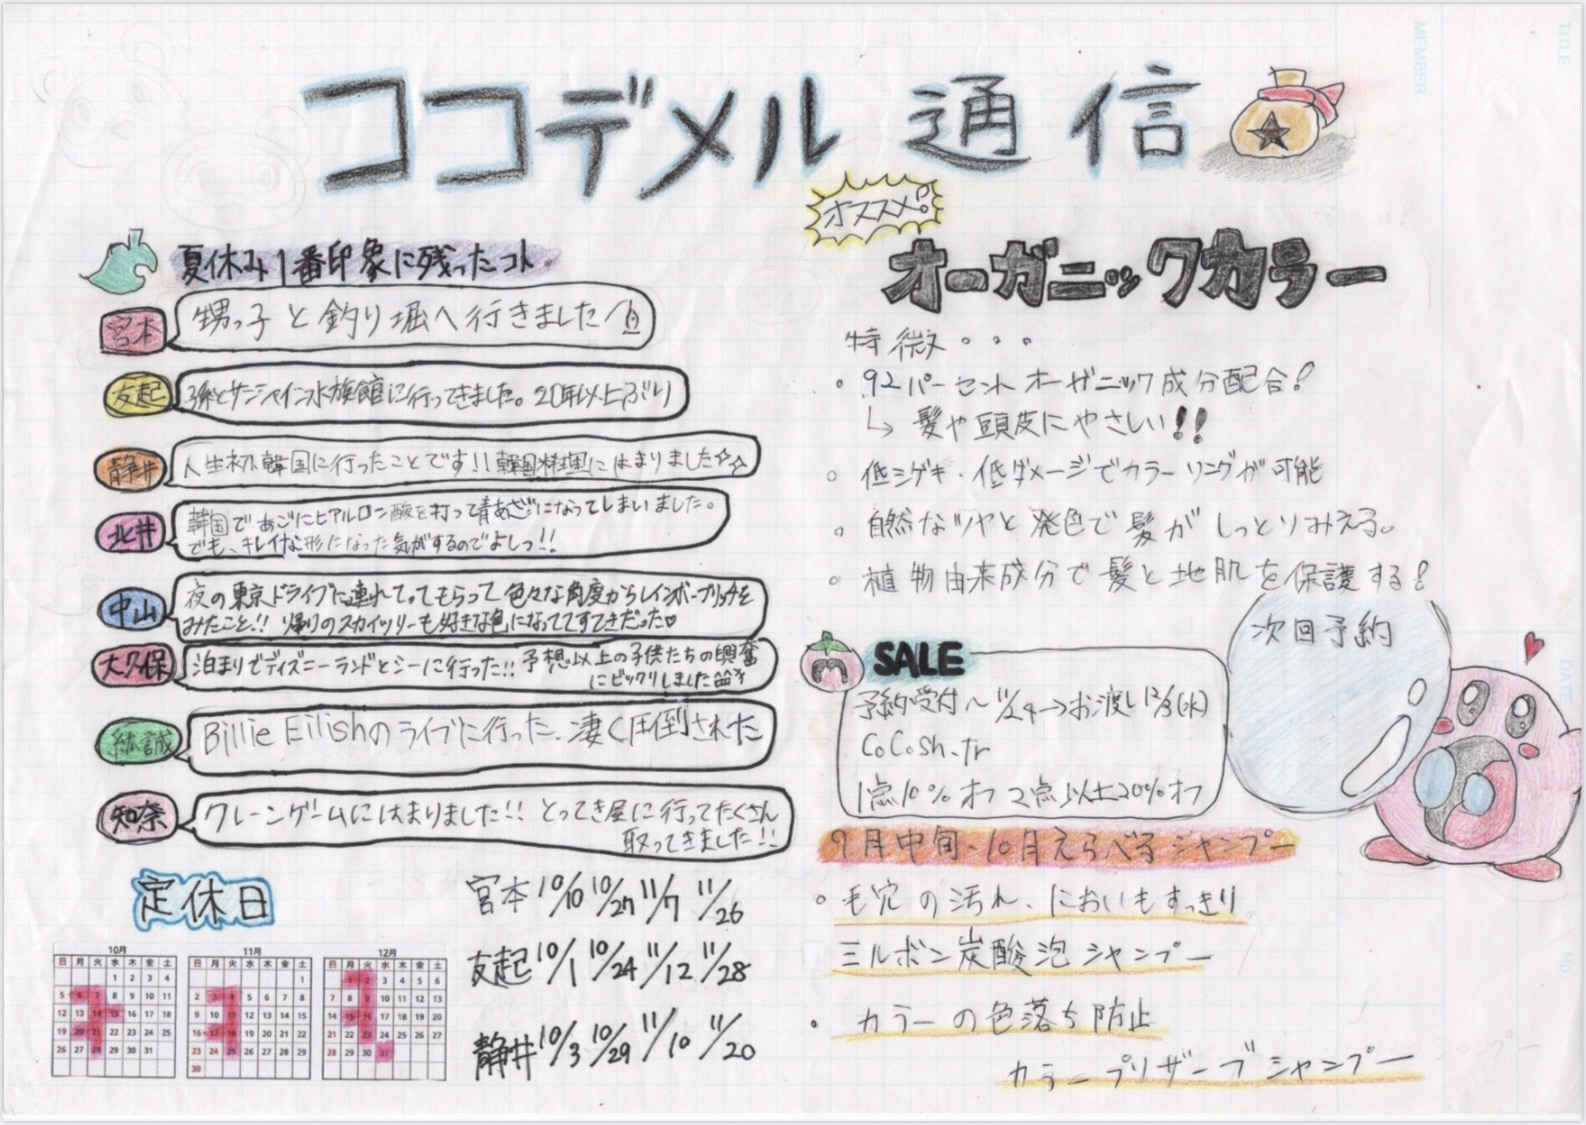 ココデメル通信
夏休み1番印象に残ったコト
宮本
甥っ子と釣り堀へ行きました
友起
孫とサンシャイン水族館に行ってきました。20年以上ぶり
静井
人生初、韓国に行ったことです!!韓国料理にはまりました☆☆
北井
韓国であごにヒアルロン酸を打って青あざになってしまいました。
でも、キレイな形になった気がするのでよしっ!!
中山
夜の東京ドライブに連れてってもらって色々な角度からレインボーブリッヂを
みたこと!! 帰りのスカイツリーも好きな色になっててすてきだった♡
大久保
泊まりでディズニーランドとシーに行った!!予想以上の子供たちの興奮
にビックリしました
紘誠
Billie Eilishのライブに行った、凄く圧倒された
知奈
クレーンゲームにはまりました!! とってき屋に行ってたくさん
取ってきました!!
定休日
10月
日 月 火 水 木 金 土
1 2 3 4
5 6 7 8 9 10 11
12 13 14 15 16 17 18
19 20 21 22 23 24 25
26 27 28 29 30 31
11月
日 月 火 水 木 金 土
1
2 3 4 5 6 7 8
9 10 11 12 13 14 15
16 17 18 19 20 21 22
23 24 25 26 27 28 29
30
12月
日 月 火 水 木 金 土
1 2 3 4 5 6
7 8 9 10 11 12 13
14 15 16 17 18 19 20
21 22 23 24 25 26 27
28 29 30 31
宮本 10/10 10/27 11/7 11/26
友起 10/1 10/24 11/12 11/28
静井 10/3 10/29 11/10 11/20
オススメ!
オーガニックカラー
特徴・・・
・92パーセントオーガニック成分配合!
↳ 髪や頭皮にやさしい!!
。低シゲキ・低ダメージでカラーリングが可能
。自然なツヤと発色で髪がしっとりみえる。
。植物由来成分で髪と地肌を保護する!
SALE
予約受付〜11/24→お渡し12/3(水)
CoCoSh.tr
1点10%オフ 2点以上20%オフ
次回予約
9月中旬、10月えらべるシャンプー
。毛穴の汚れ、においもすっきり
ミルボン炭酸泡シャンプー
・カラーの色落ち防止
カラープリザーブシャンプー
TITLE
MEMBER
DATE
No.